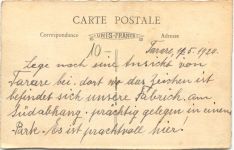 CARTE POSTALE
Correspondance
UNIS-FRANCE
Adresse
10.-
Tarare, 19.5.1920.
Lege noch eine Ansicht von
Tarare bei, dort wo das Zeichen ist
befindet sich unsere Fabrick, am
Südabhang, prächtig gelegen in einem
Park. Es ist prachtvoll hier.